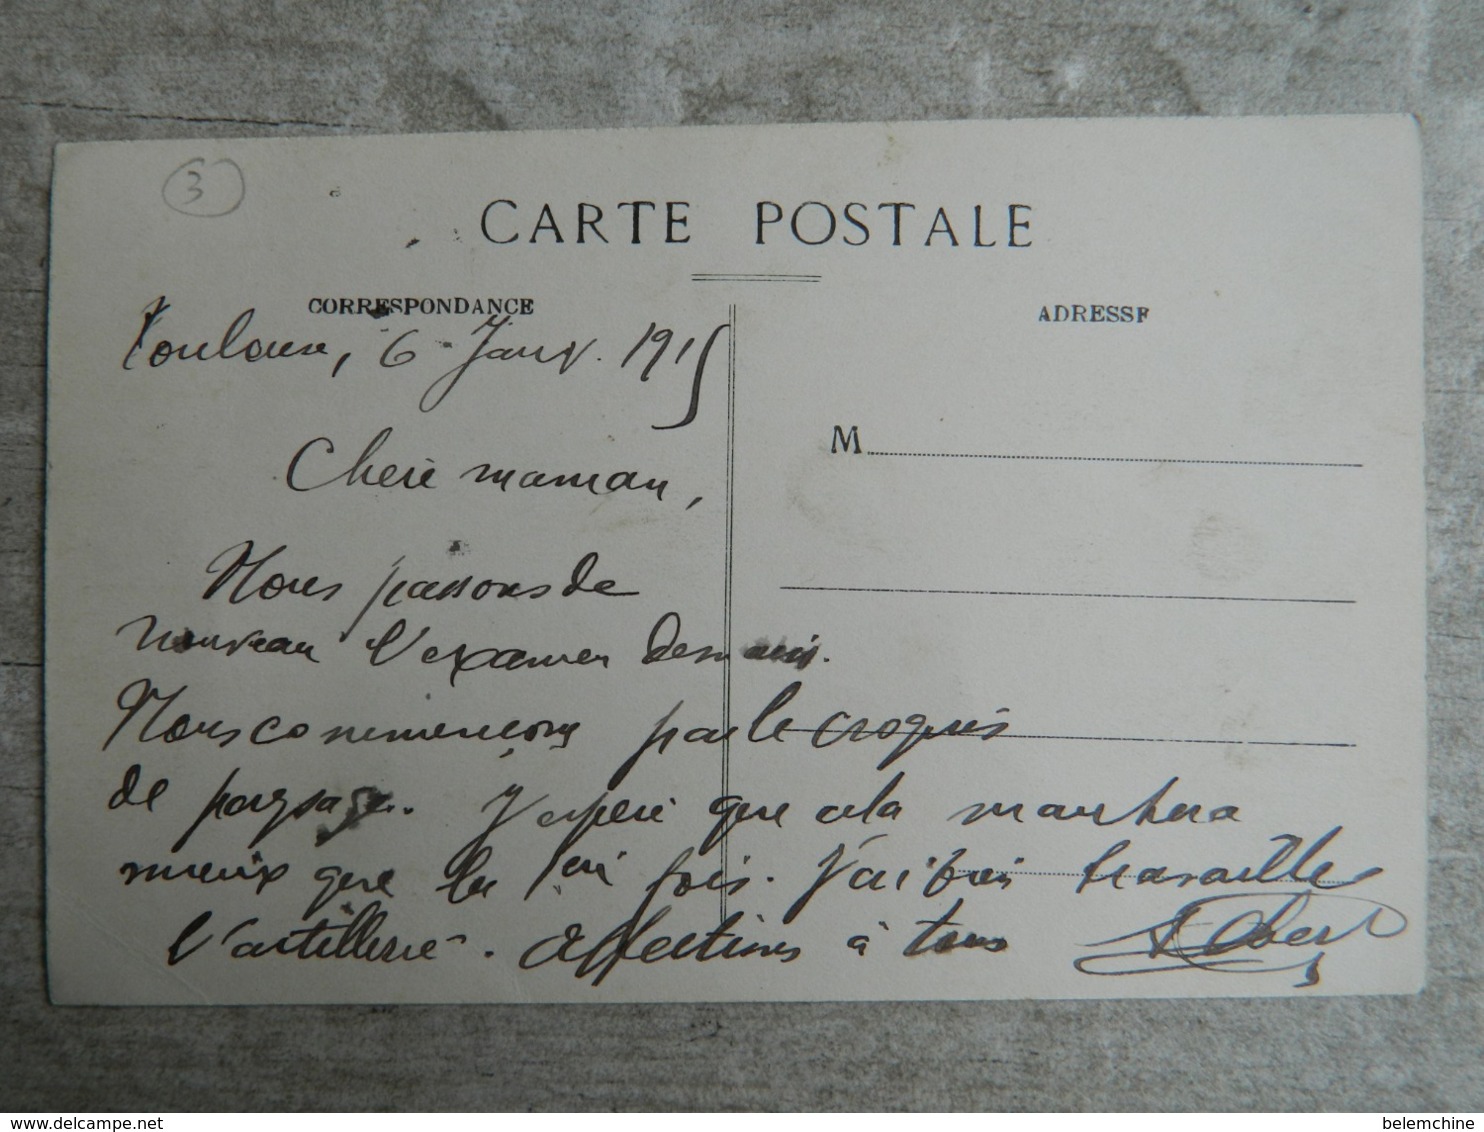 3
CARTE POSTALE
CORRESPONDANCE
ADRESSE
M
Toulouse, 6 Janv. 1915
Chère maman,
Nous passons de
nouveau l'examen demain.
Nous commençons par le croquis
de paysage. J'espère que cela marchera
mieux que la 1ère fois. J'ai bien travaillé
l'artillerie. Affections à tous
belemchine